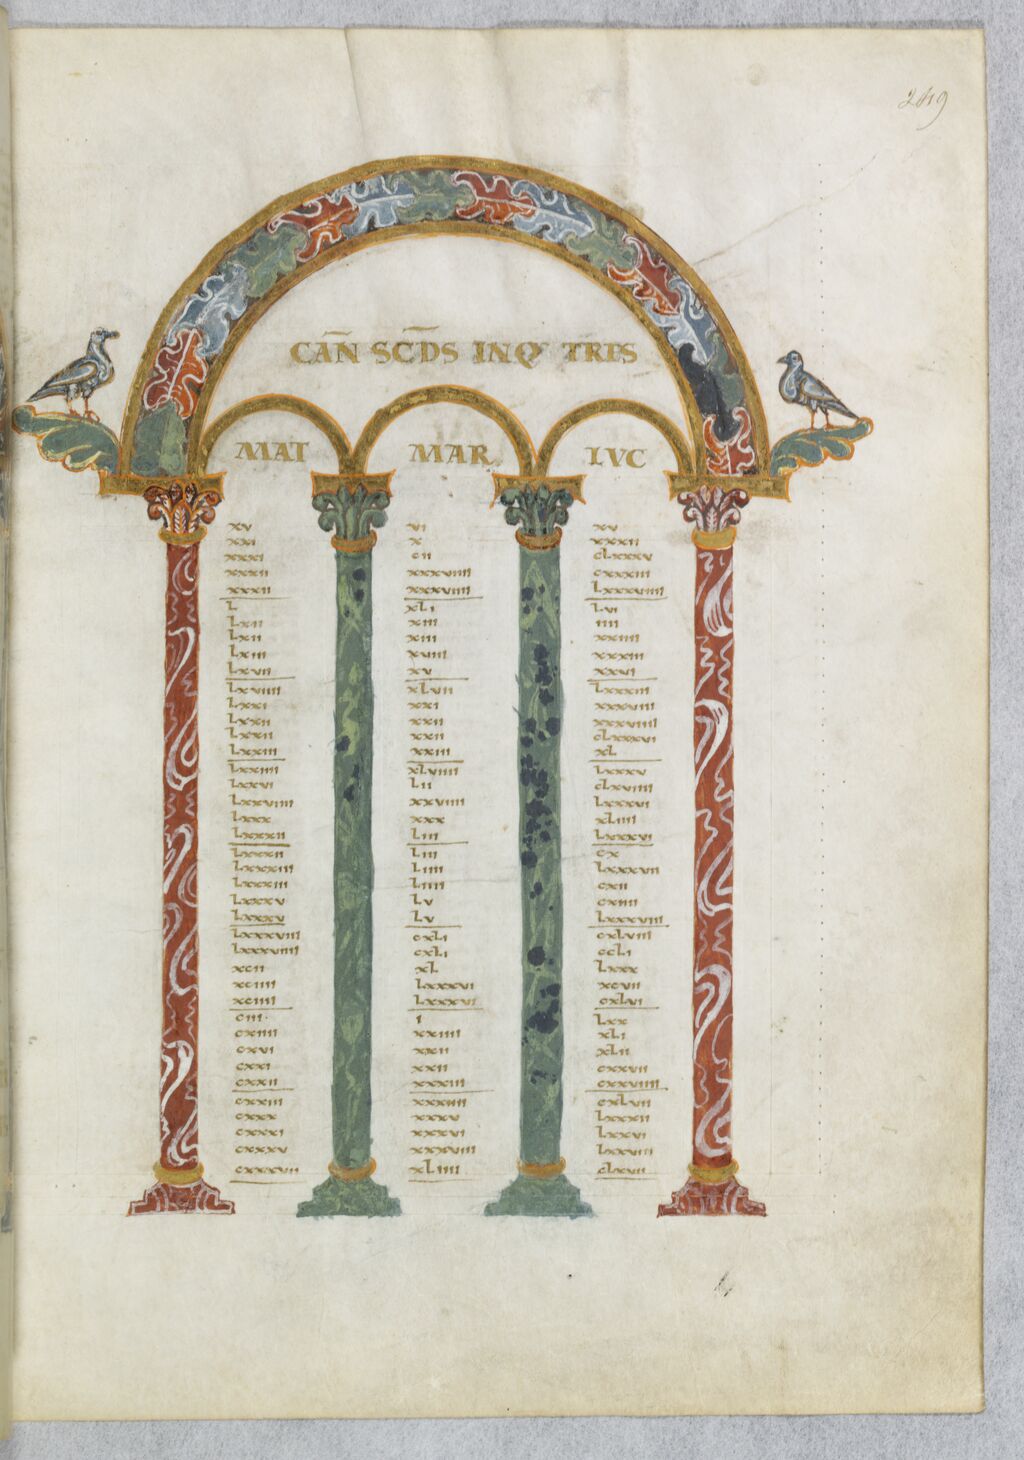 249
CAN SCDS INQV TRES
MAT MAR LVC
xv vi xv
xxi x xxxii
xxxi cii cLxxxv
xxxii xxxviiii cxxxiii
xxxii xxxviiii Lxxxviiii
L xLi Lvi
Lxii xiii iiii
Lxii xiii xxiiii
Lxiii xviii xxxiii
Lxvii xv xxvi
Lxviiii xLvii Lxxxiii
Lxxi xxi xxxviii
Lxxii xxii xxxviiii
Lxxii xxii cLxxxvi
Lxxiii xxiii xL
Lxxiiii xLviiii Lxxxv
Lxxvi Lii cLxviiii
Lxxviiii xxviiii Lxxxvi
Lxxx xxx xLiiii
Lxxxii Liii Lxxxvi
Lxxxii Liii cx
Lxxxiii Liiii Lxxxvii
Lxxxiii Liiii cxii
Lxxxv Lv cxiiii
Lxxxv Lv Lxxxviii
Lxxxviii cxLi cxLviii
Lxxxviiii cxLi ccLi
xcii xL Lxxx
xciiii Lxxxvi xcvii
xciiii Lxxxvi cxLvi
ciii. i Lxx
cxiiii xxiiii xLi
cxvi xxii xLii
cxxi xxii cxxvii
cxxii xxxiii cxxviiii
cxxiii xxxiiii cxLvii
cxxx xxxv Lxxxii
cxxxi xxxvi Lxxvi
cxxxv xxxviii Lxxviii
cxxxvii xLiiii cLxvii